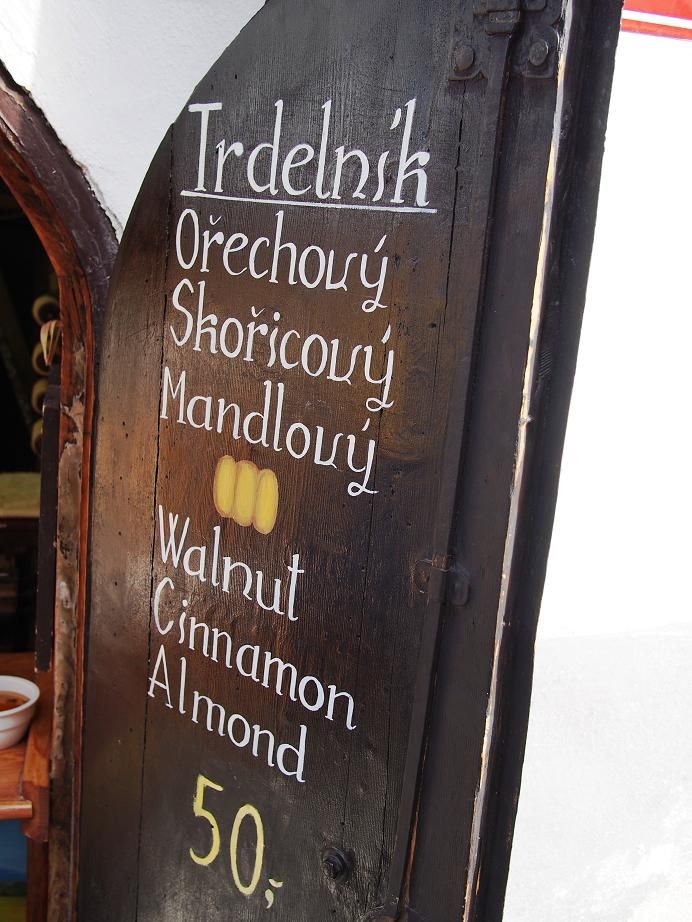 Trdelník
Ořechový
Skořicový
Mandlový
Walnut
Cinnamon
Almond
50,-